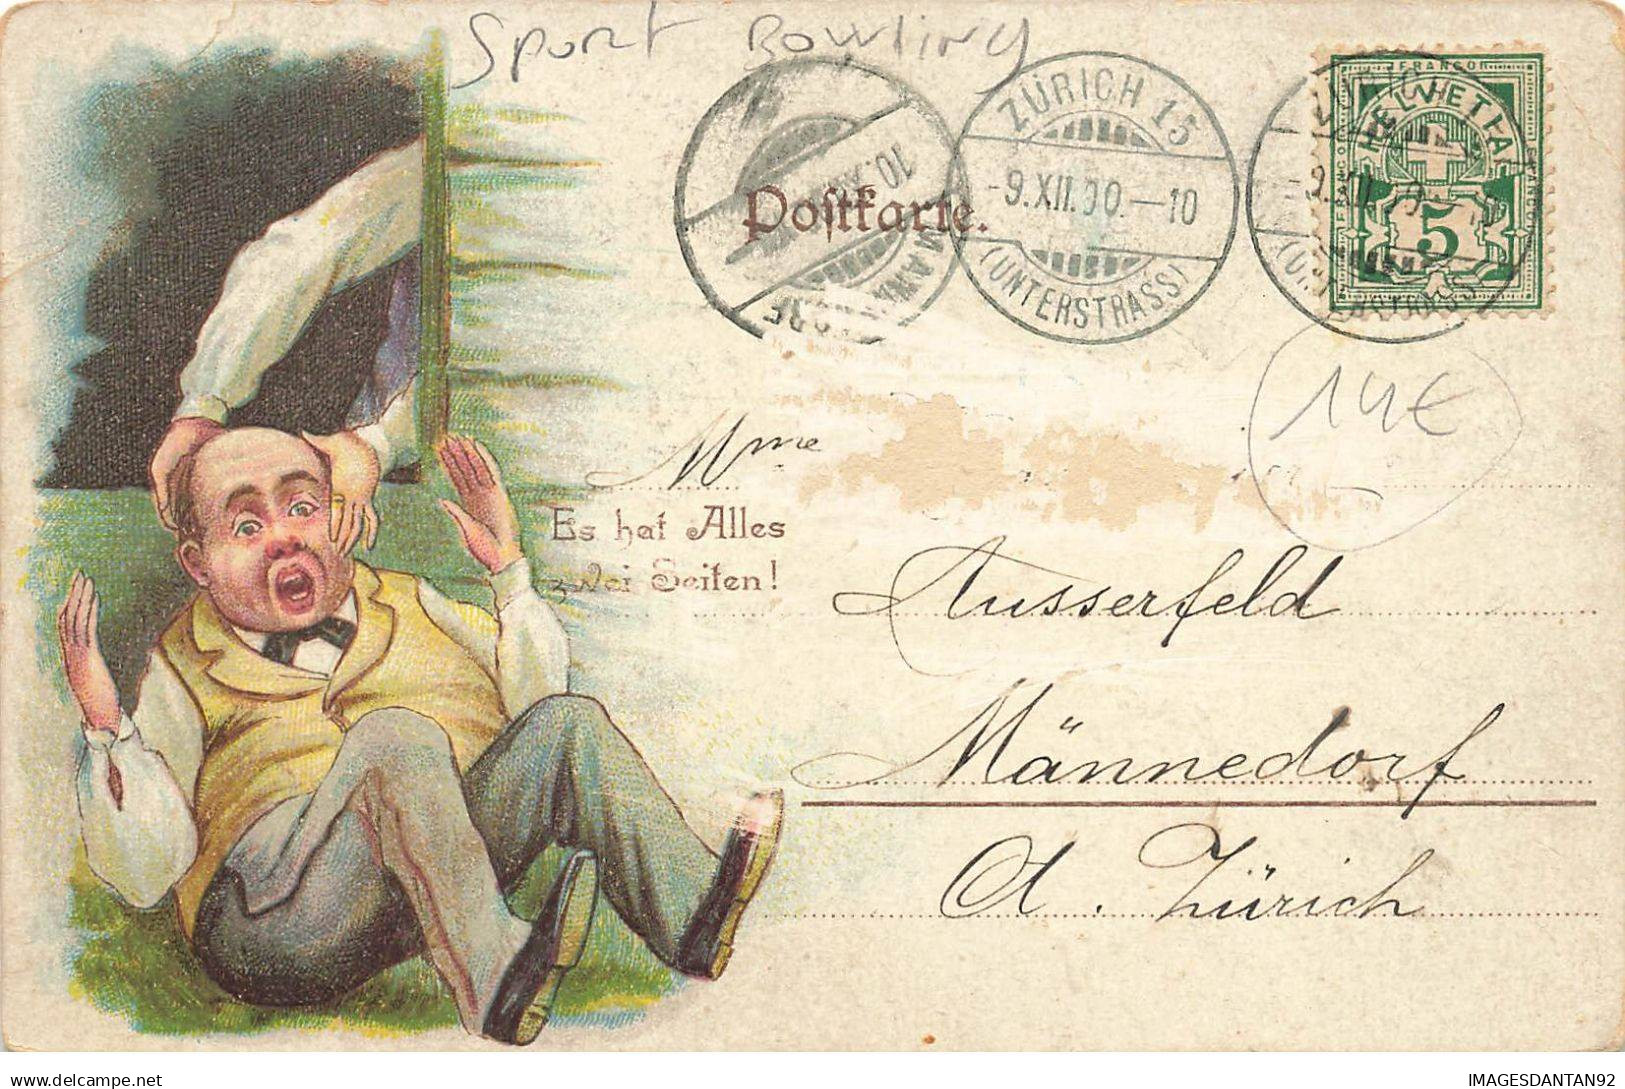 Sport Bowling
ZÜRICH 15
-9.XII.00.-10
(UNTERSTRASS)
10.
FRANCO
HELVETIA
5
Postkarte.
14€
Mme
Es hat Alles
zwei Seiten!
Ausserfeld
Männedorf
Ct. Zürich
IMAGESDANTAN92